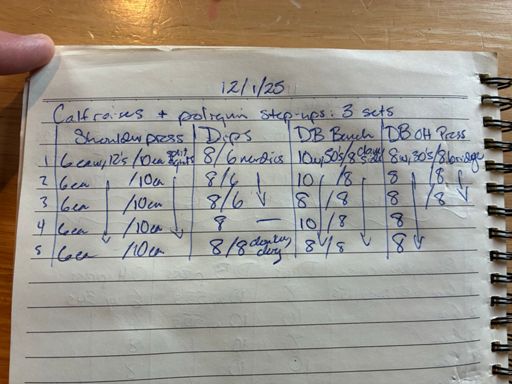 12/1/25
Calf raises + poliquin step-ups: 3 sets
Shoulder press Dips DB Bench DB OH Press
1 6ea w/12's /10ea split squats 8/6 nordics 10 w/50's/8 8 w/30's/8 bridge
2 6ea /10ea 8/6 10 /8 8 /8
3 6ea /10ea 8/6 8 /8 8 /8
4 6ea /10ea 8 — 10 /8 8
5 6ea /10ea 8/8 donkey 8/8 8